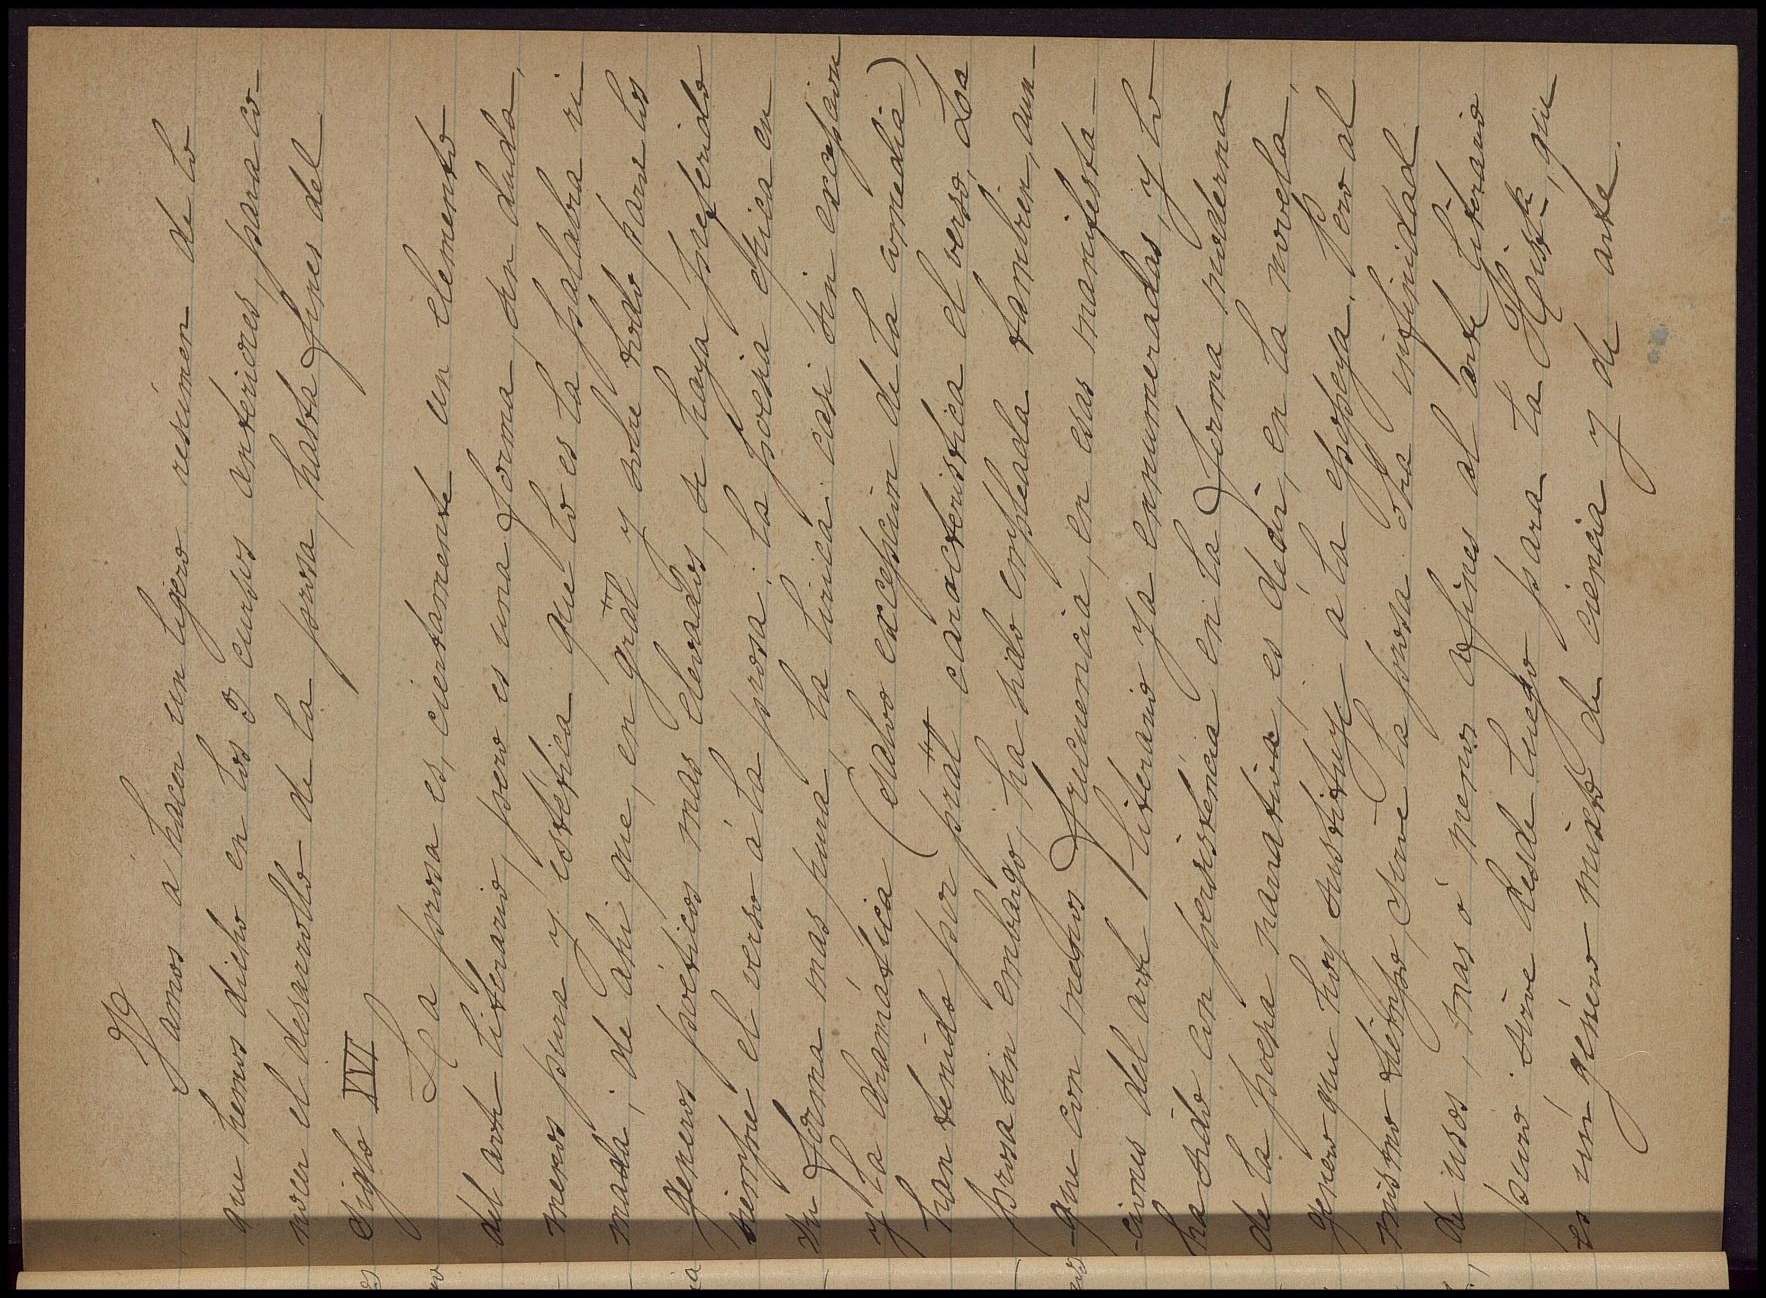 Vamos á hacer un ligero resúmen de lo
que hemos dicho en los 2 cursos anteriores para co-
nocer el desarrollo de la prosa, hasta fines del
siglo XVI
La prosa es, ciertamente un elemento
del arte literario, pero es una forma, sin duda,
menos pura y estética que lo es la palabra ri
mada; de ahi que, en gral y sobre todo para los
generos poeticos mas elevados, se haya preferido
siempre el verso á la prosa; la poesia epica en
su forma mas pura, la lirica casi sin excepcion
y la dramática (salvo excepcion de la comedia)
han tenido por gral caracteristica el verso. La
prosa sin embargo, ha sido empleada tambien, aun-
que con menos frecuencia, en esas manifesta-
-ciones del arte literario ya enumeradas, y lo
ha sido con persistencia en la forma moderna
de la poesia narrativa, es decir, en la novela,
genero que hoy sustituye a la epopeya. Pero al
mismo tiempo sirve la prosa á una infinidad
de usos, mas ó menos afines al arte literario
puro: sirve desde luego para la Historia, que
es un género mixto de ciencia y de arte.